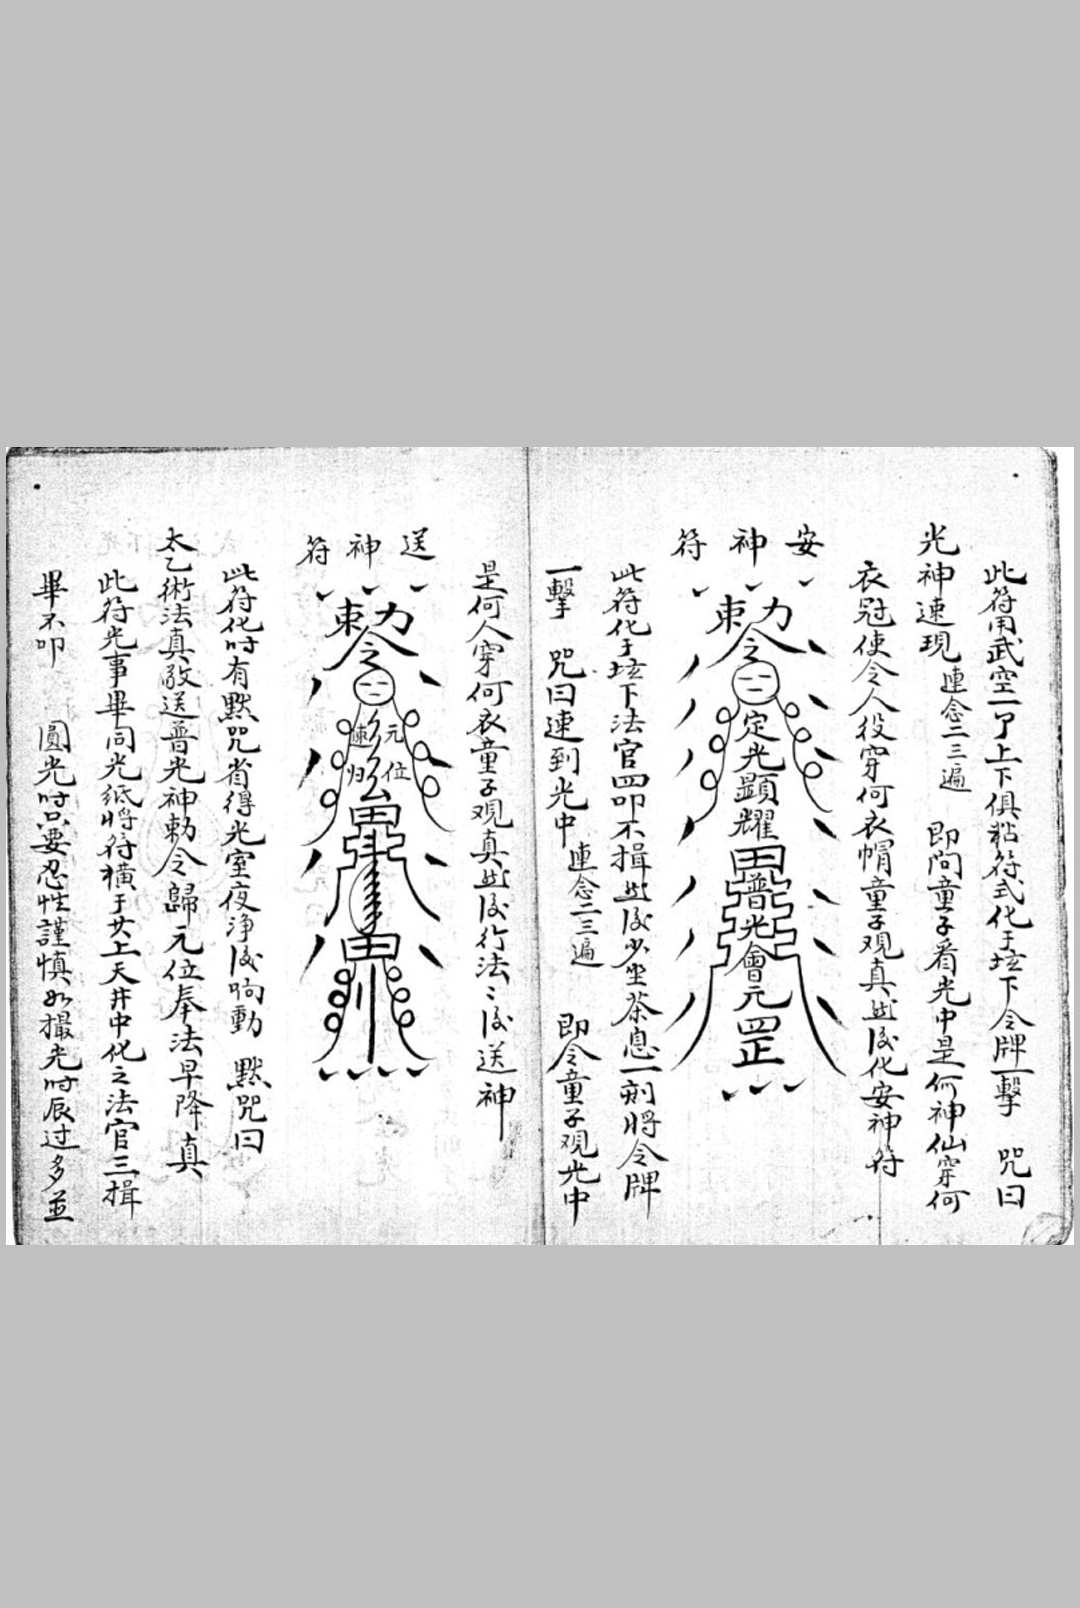 此符用武空一了上下俱粘符式化于坛下令牌一擊　咒曰
光神速現　連念二三遍　即问童子看光中是何神仙穿何
衣冠使令人役穿何衣帽童子观真此后化安神符
安神符
敕令
定光顕耀
普光會元
罡
此符化于坛下法官四叩不揖此后少坐茶息一刻將令牌
一擊　咒曰速到光中　連念二三遍　即令童子观光中
是何人穿何衣童子观真此后行法〻后送神
送神符
敕令
元位
速归
此符化时有默咒省得光室夜净后响動　默咒曰
太乙術法真敬送普光神勅令歸元位奉法早降真
此符光事畢同光紙將符横于其上天井中化之法官三揖
畢不叩　圓光时只要忍性謹慎如撮光时辰过多並